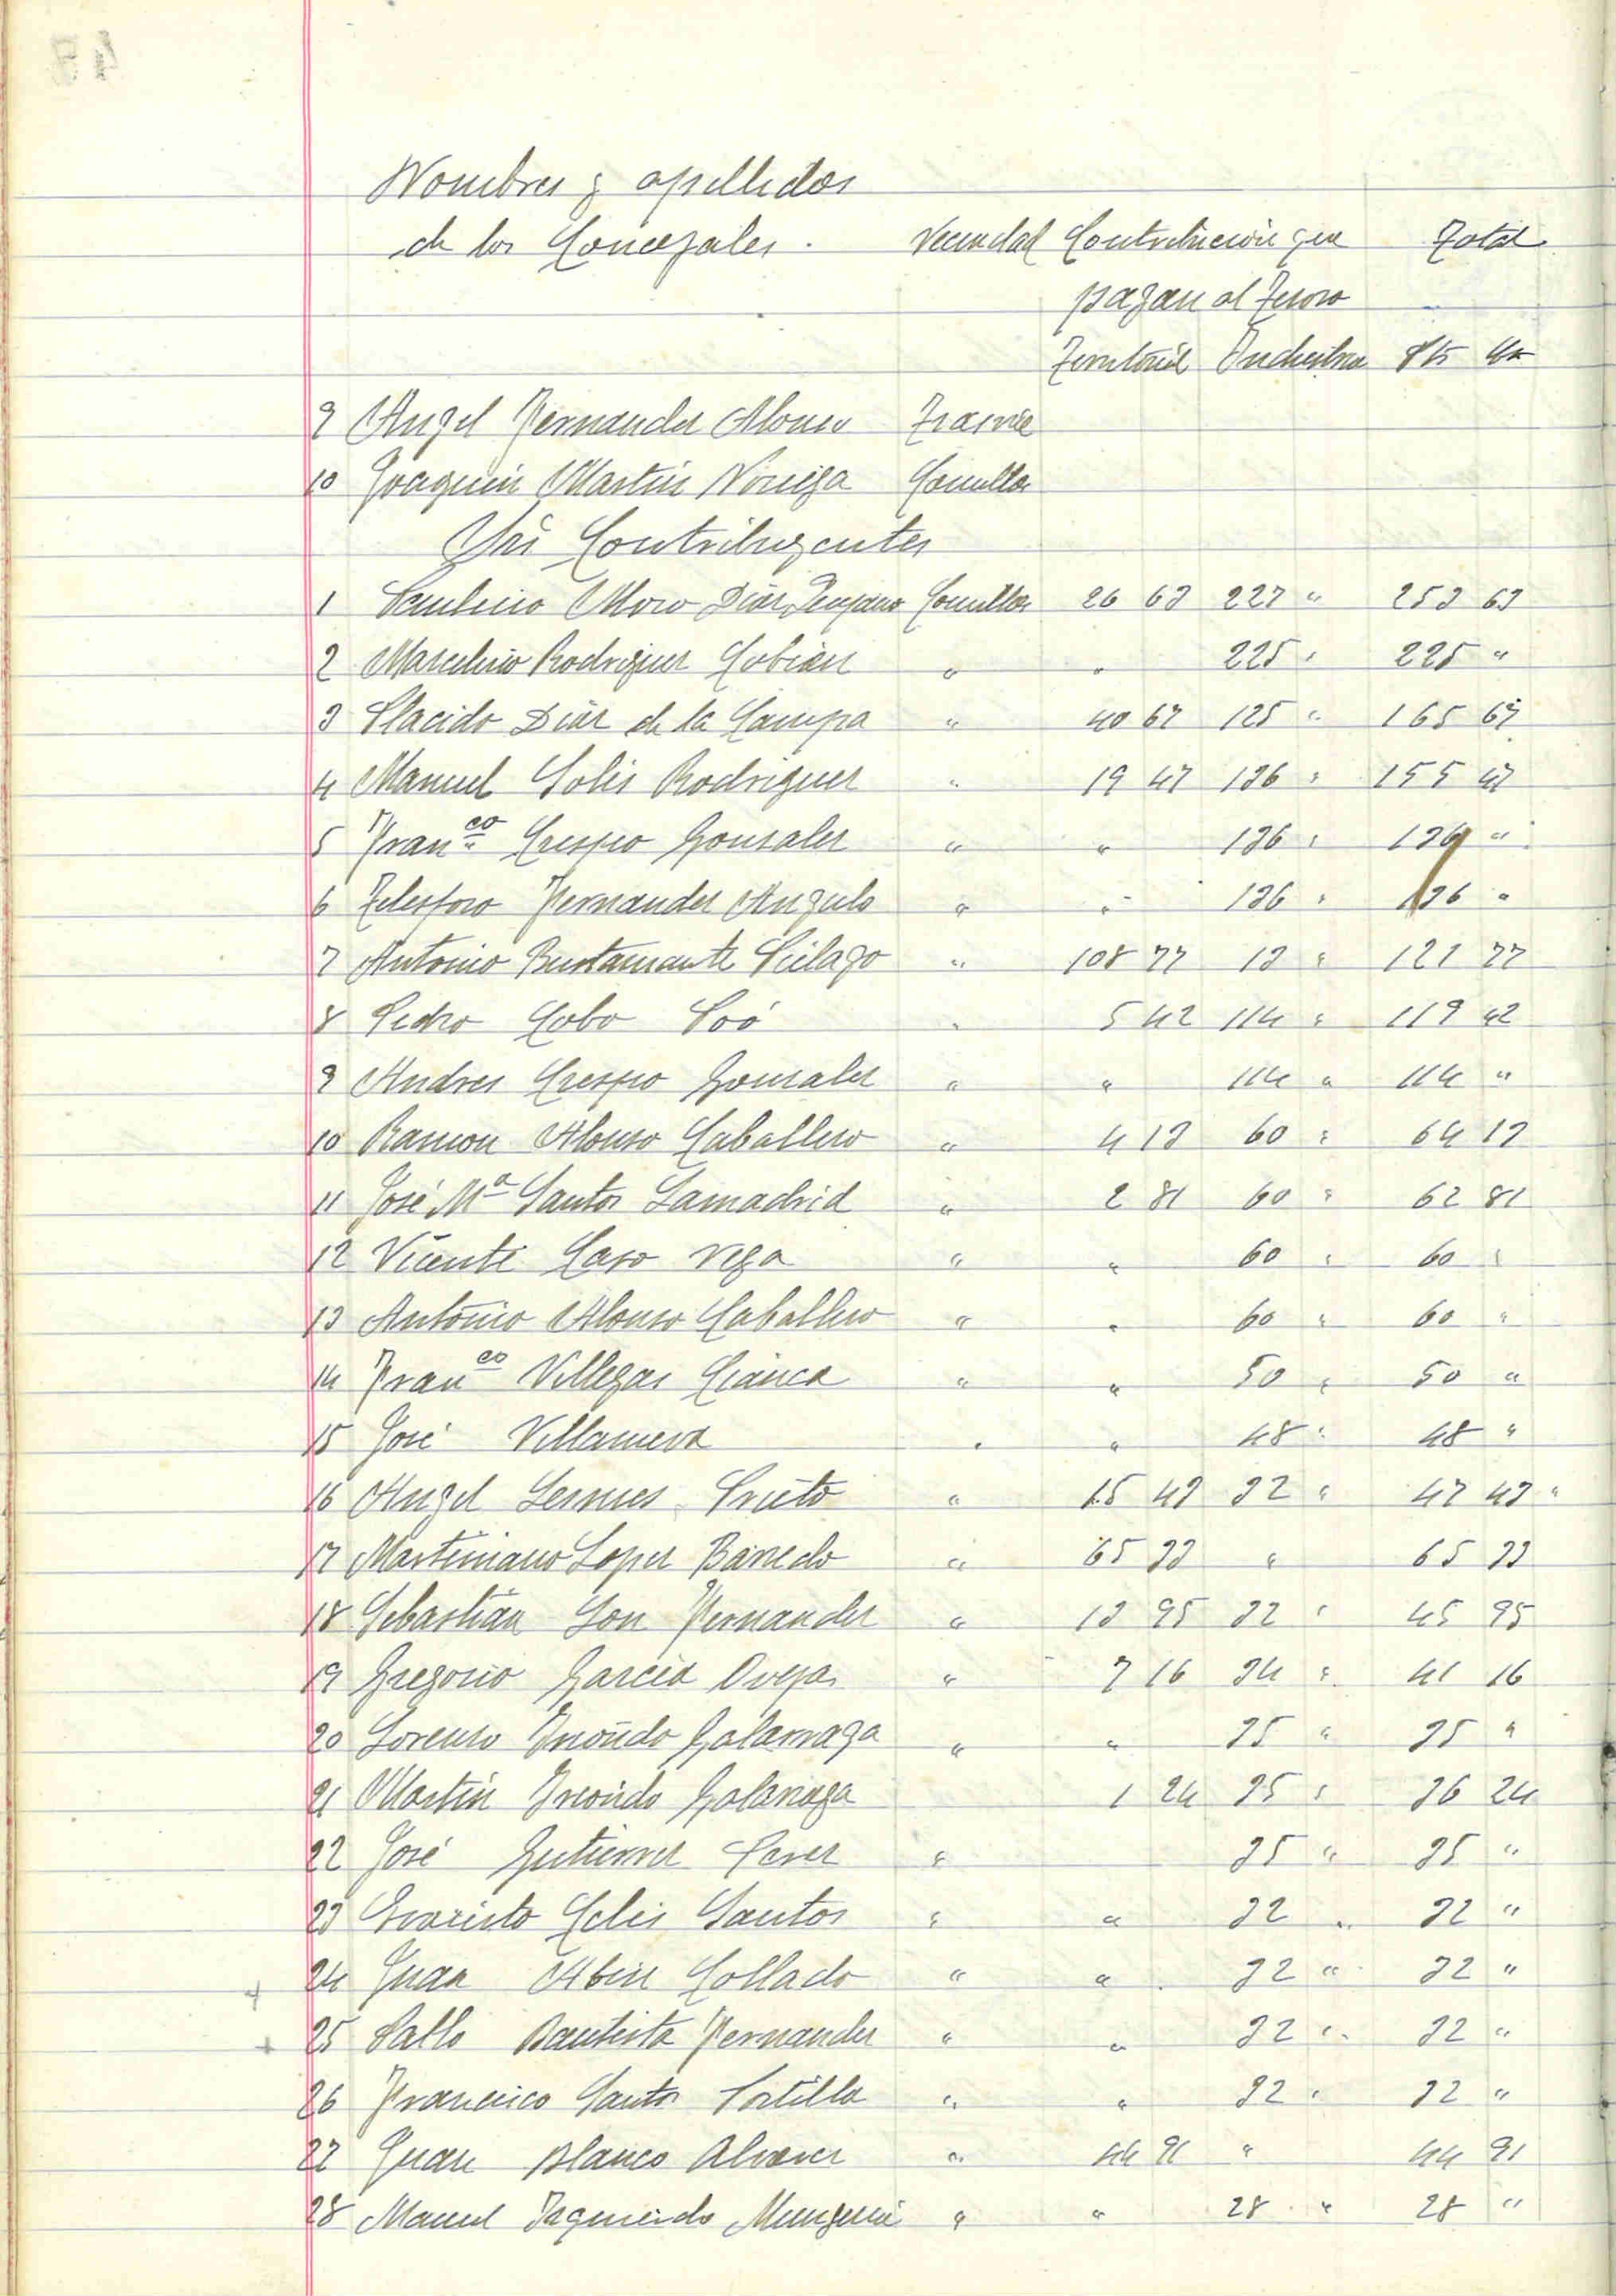 Nombres y apellidos
de los Concejales. Vecindad Contribución que Total
pagan al Tesoro
Territorial Industria Pts Cs
9 Angel Fernandez Alonso Trasvia
10 Joaquin Martin Noriega Comillas
Contribuyentes
1 Paulino Moro Diaz Comillas 26 63 227 " 253 63
2 Marcelino Rodriguez Cobian " " 225 " 225 "
3 Placido Diaz de la Campa " 40 67 125 " 165 67
4 Manuel Solis Rodriguez " 19 47 136 " 155 47
5 Franco Crespo Gonzalez " " 136 " 136 "
6 Telesforo Fernandez Angulo " " 136 " 136 "
7 Antonio Bustamante Pielago " 108 77 13 " 121 77
8 Pedro Cobo Poó " 5 42 114 " 119 42
9 Andres Crespo Gonzalez " " 114 " 114 "
10 Ramon Alonso Caballero " 4 19 60 " 64 19
11 José Mª Santos Lamadrid " 2 81 60 " 62 81
12 Vicente Caso Vega " " 60 " 60 "
13 Antonio Alonso Caballero " " 60 " 60 "
14 Franco Villegas Cianca " " 50 " 50 "
15 José Villamera " " 48 " 48 "
16 Angel Prieto " 15 49 32 " 47 49 "
17 Martiniano Lopez Banedo " 65 33 " 65 33
18 Sebastian Son Fernandez " 13 95 32 " 45 95
19 Gregorio Garcia Oveja " 7 16 34 " 41 16
20 Lorenzo Yrzondo Galarraga " " 35 " 35 "
21 Martin Galarraga 1 24 35 " 36 24
22 José Gutierrez Perez " 35 " 35 "
23 Evaristo Celis Santos " " 32 " 32 "
24 Juan Abin Collado " " 32 " 32 "
25 Pablo Bautista Fernandez " " 32 " 32 "
26 Francisco Santos Portilla " " 32 " 32 "
27 Juan Blanco Alvarez " 44 91 " 44 91
28 Manuel Izquierdo " " 28 " 28 "